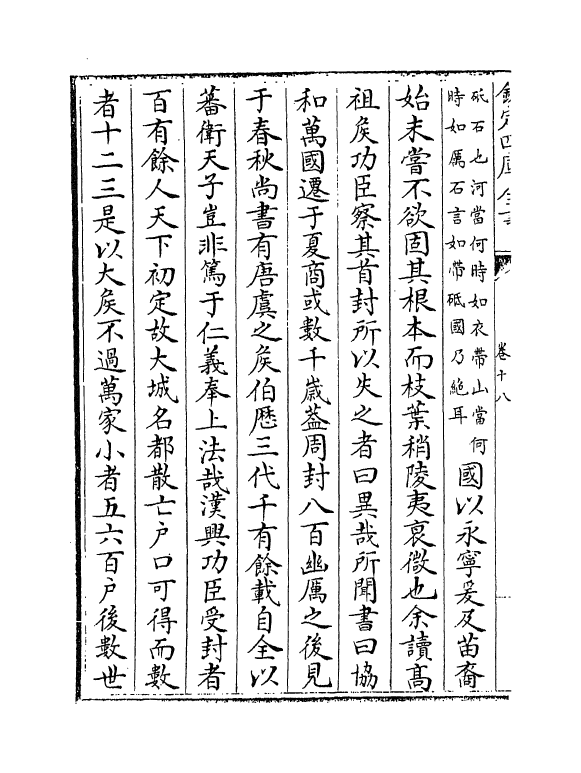 欽定四庫全書
卷十八
砥石也河當何時如衣帶山當何
時如厲石言如帶砥國乃絶耳
國以永寧爰及苗裔
始未嘗不欲固其根本而枝葉稍陵夷衰微也余讀髙
祖矦功臣察其首封所以失之者曰異哉所聞書曰協
和萬國遷于夏商或數千歲葢周封八百幽厲之後見
于春秋尚書有唐虞之矦伯歷三代千有餘載自全以
蕃衛天子豈非篤于仁義奉上法哉漢興功臣受封者
百有餘人天下初定故大城名都散亡户口可得而數
者十二三是以大矦不過萬家小者五六百户後數世